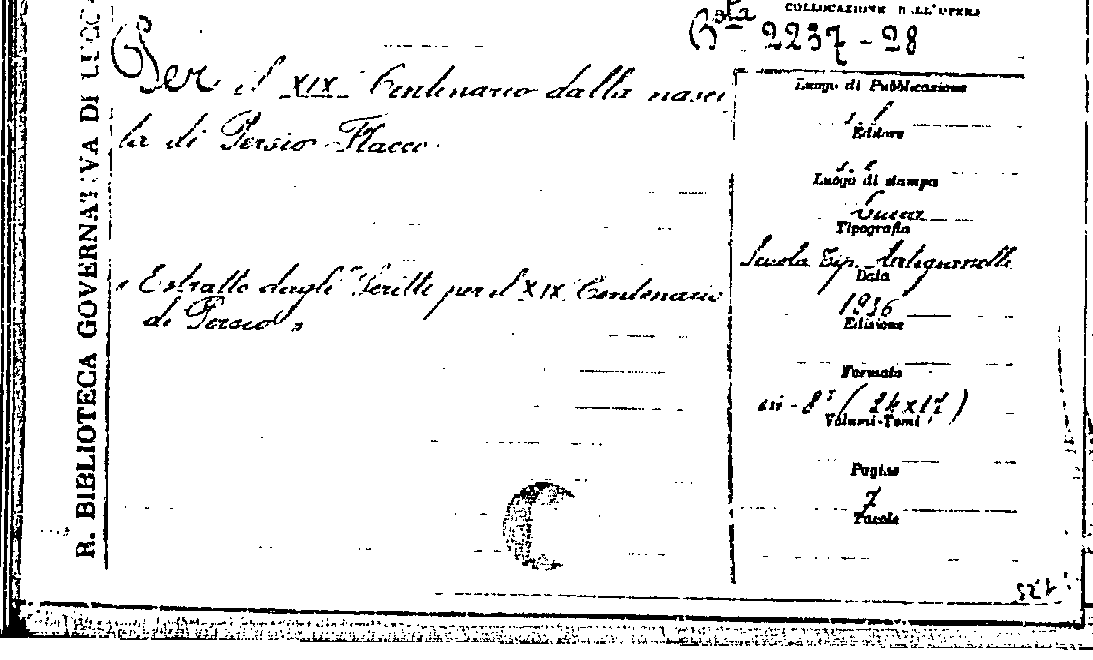 R. BIBLIOTECA GOVERNATIVA DI LUCCA
COLLOCAZIONE DELL'OPERA
Bta 2237-28
Per il XIX Centenario dalla nasci
ta di Persio Flacco.
« Estratto dagli "Scritti per il XIX Centenario
di Persio »
Luogo di Pubblicazione
s. l.
Editore
s. e.
Luogo di stampa
Lucca
Tipografia
Scuola Tip. Artigianelli
Data
1936
Edizione
Formato
in-8° (24x17)
Volumi-Tomi
Pagine
7
Tavole